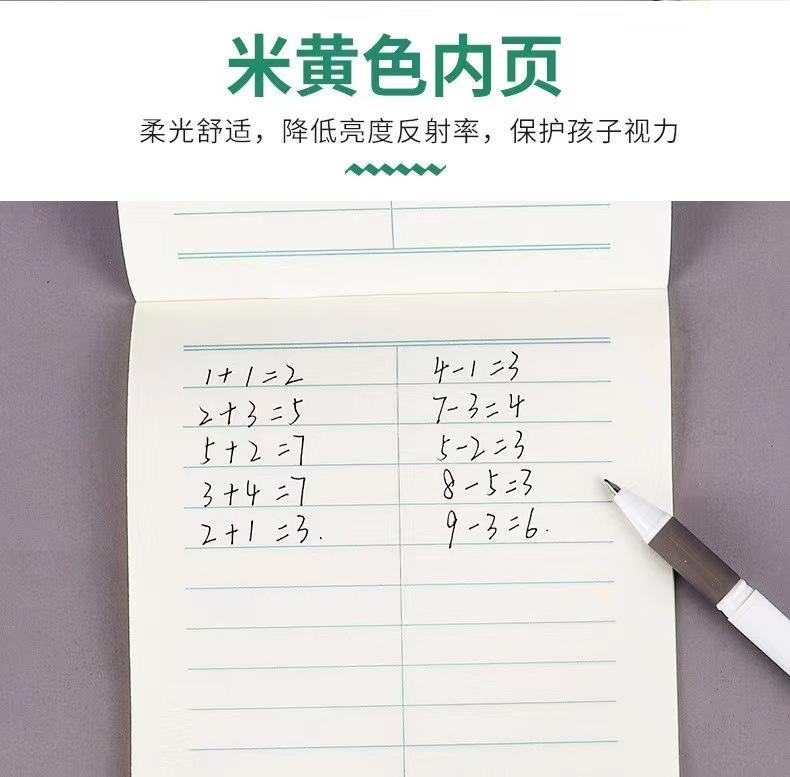 米黄色内页
柔光舒适，降低亮度反射率，保护孩子视力
1+1=2
2+3=5
5+2=7
3+4=7
2+1=3.
4-1=3
7-3=4
5-2=3
8-5=3
9-3=6.